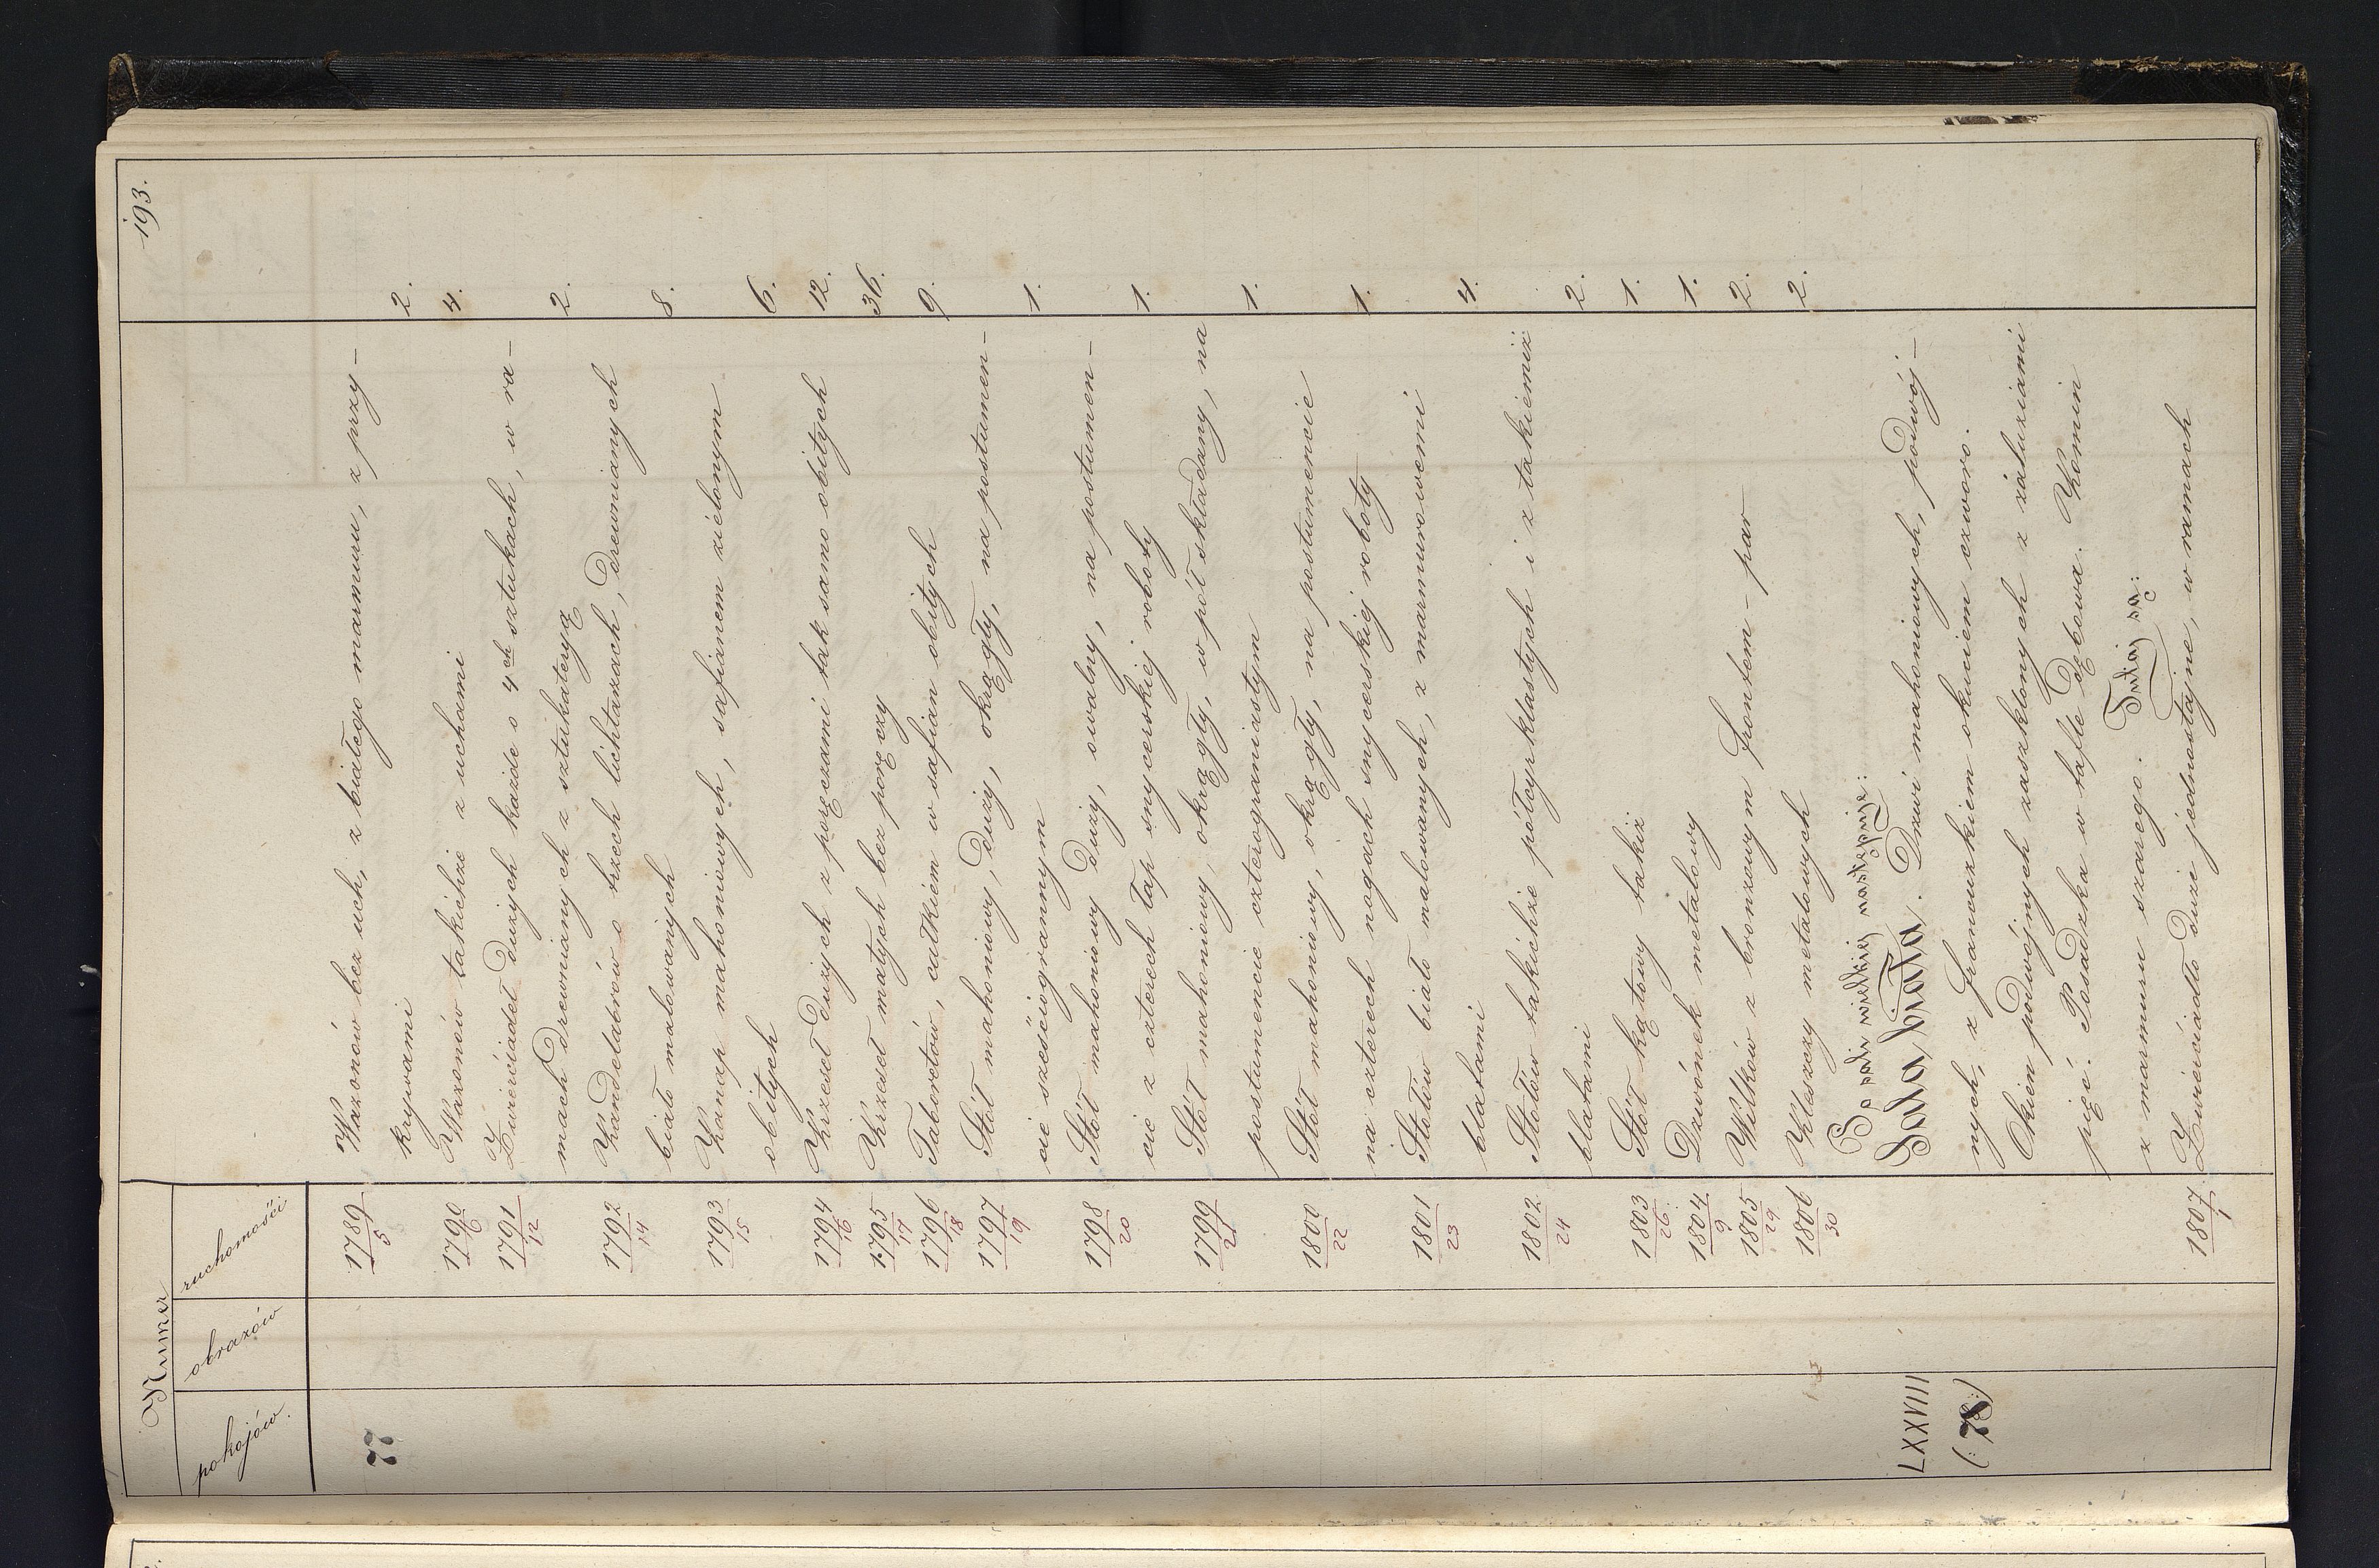 193.
Numer
pokojów. obrazów ruchomości
77 1789/5 Wazonów bez uch, z białego marmuru, z przy-
krywami 2.
1790/6 Wazonów takichże z uchami 4.
1791/12 Zwierciadeł dużych każde o 4ch sztukach, w ra-
mach drewnianych z sztukateryą 2.
1792/14 Kandelabrów o trzech lichtarzach, drewnianych
biało malowanych 8.
1793/15 Kanap mahoniowych, safianem zielonym
obitych 6.
1794/16 Krzeseł dużych z poręczami tak samo obitych 12.
1795/17 Krzeseł małych bez poręczy 36.
1796/18 Taboretów, całkiem w safian obitych 9.
1797/19 Stół mahoniowy, duży, okrągły, na postumen-
cie sześciogrannym 1.
1798/20 Stół mahoniowy duży, owalny, na postumen-
cie z czterech łap snycerskiej roboty 1.
1799/21 Stół mahoniowy, okrągły, w pół składany, na
postumencie czterograniastym 1.
1800/22 Stół mahoniowy, okrągły, na postumencie
na czterech nogach snycerskiej roboty 1.
1801/23 Stołów biało malowanych, z marmurowemi
blatami 4.
1802/24 Stołów takichże półcyrklastych i z takiemiż
blatami 2.
1803/26 Stół kątowy takiż 1.
1804/9 Dzwonek metalowy 1.
1805/29 Wilków z bronzowym frontem - par 2.
1806/30 Kleszczy metalowych 2.
Po sali wielkiej następuje:
LXXVIII Sala biała. Drzwi mahoniowych, podwój-
(:78:) nych, z francuzkiem okuciem czworo.
Okien podwójnych zaszklonych z żaluziami
pięć. Posadzka w tafle dębowa. Komin
z marmuru szarego. Tutaj są:
1807/1 Zwierciadło duże jednostajne, w ramach